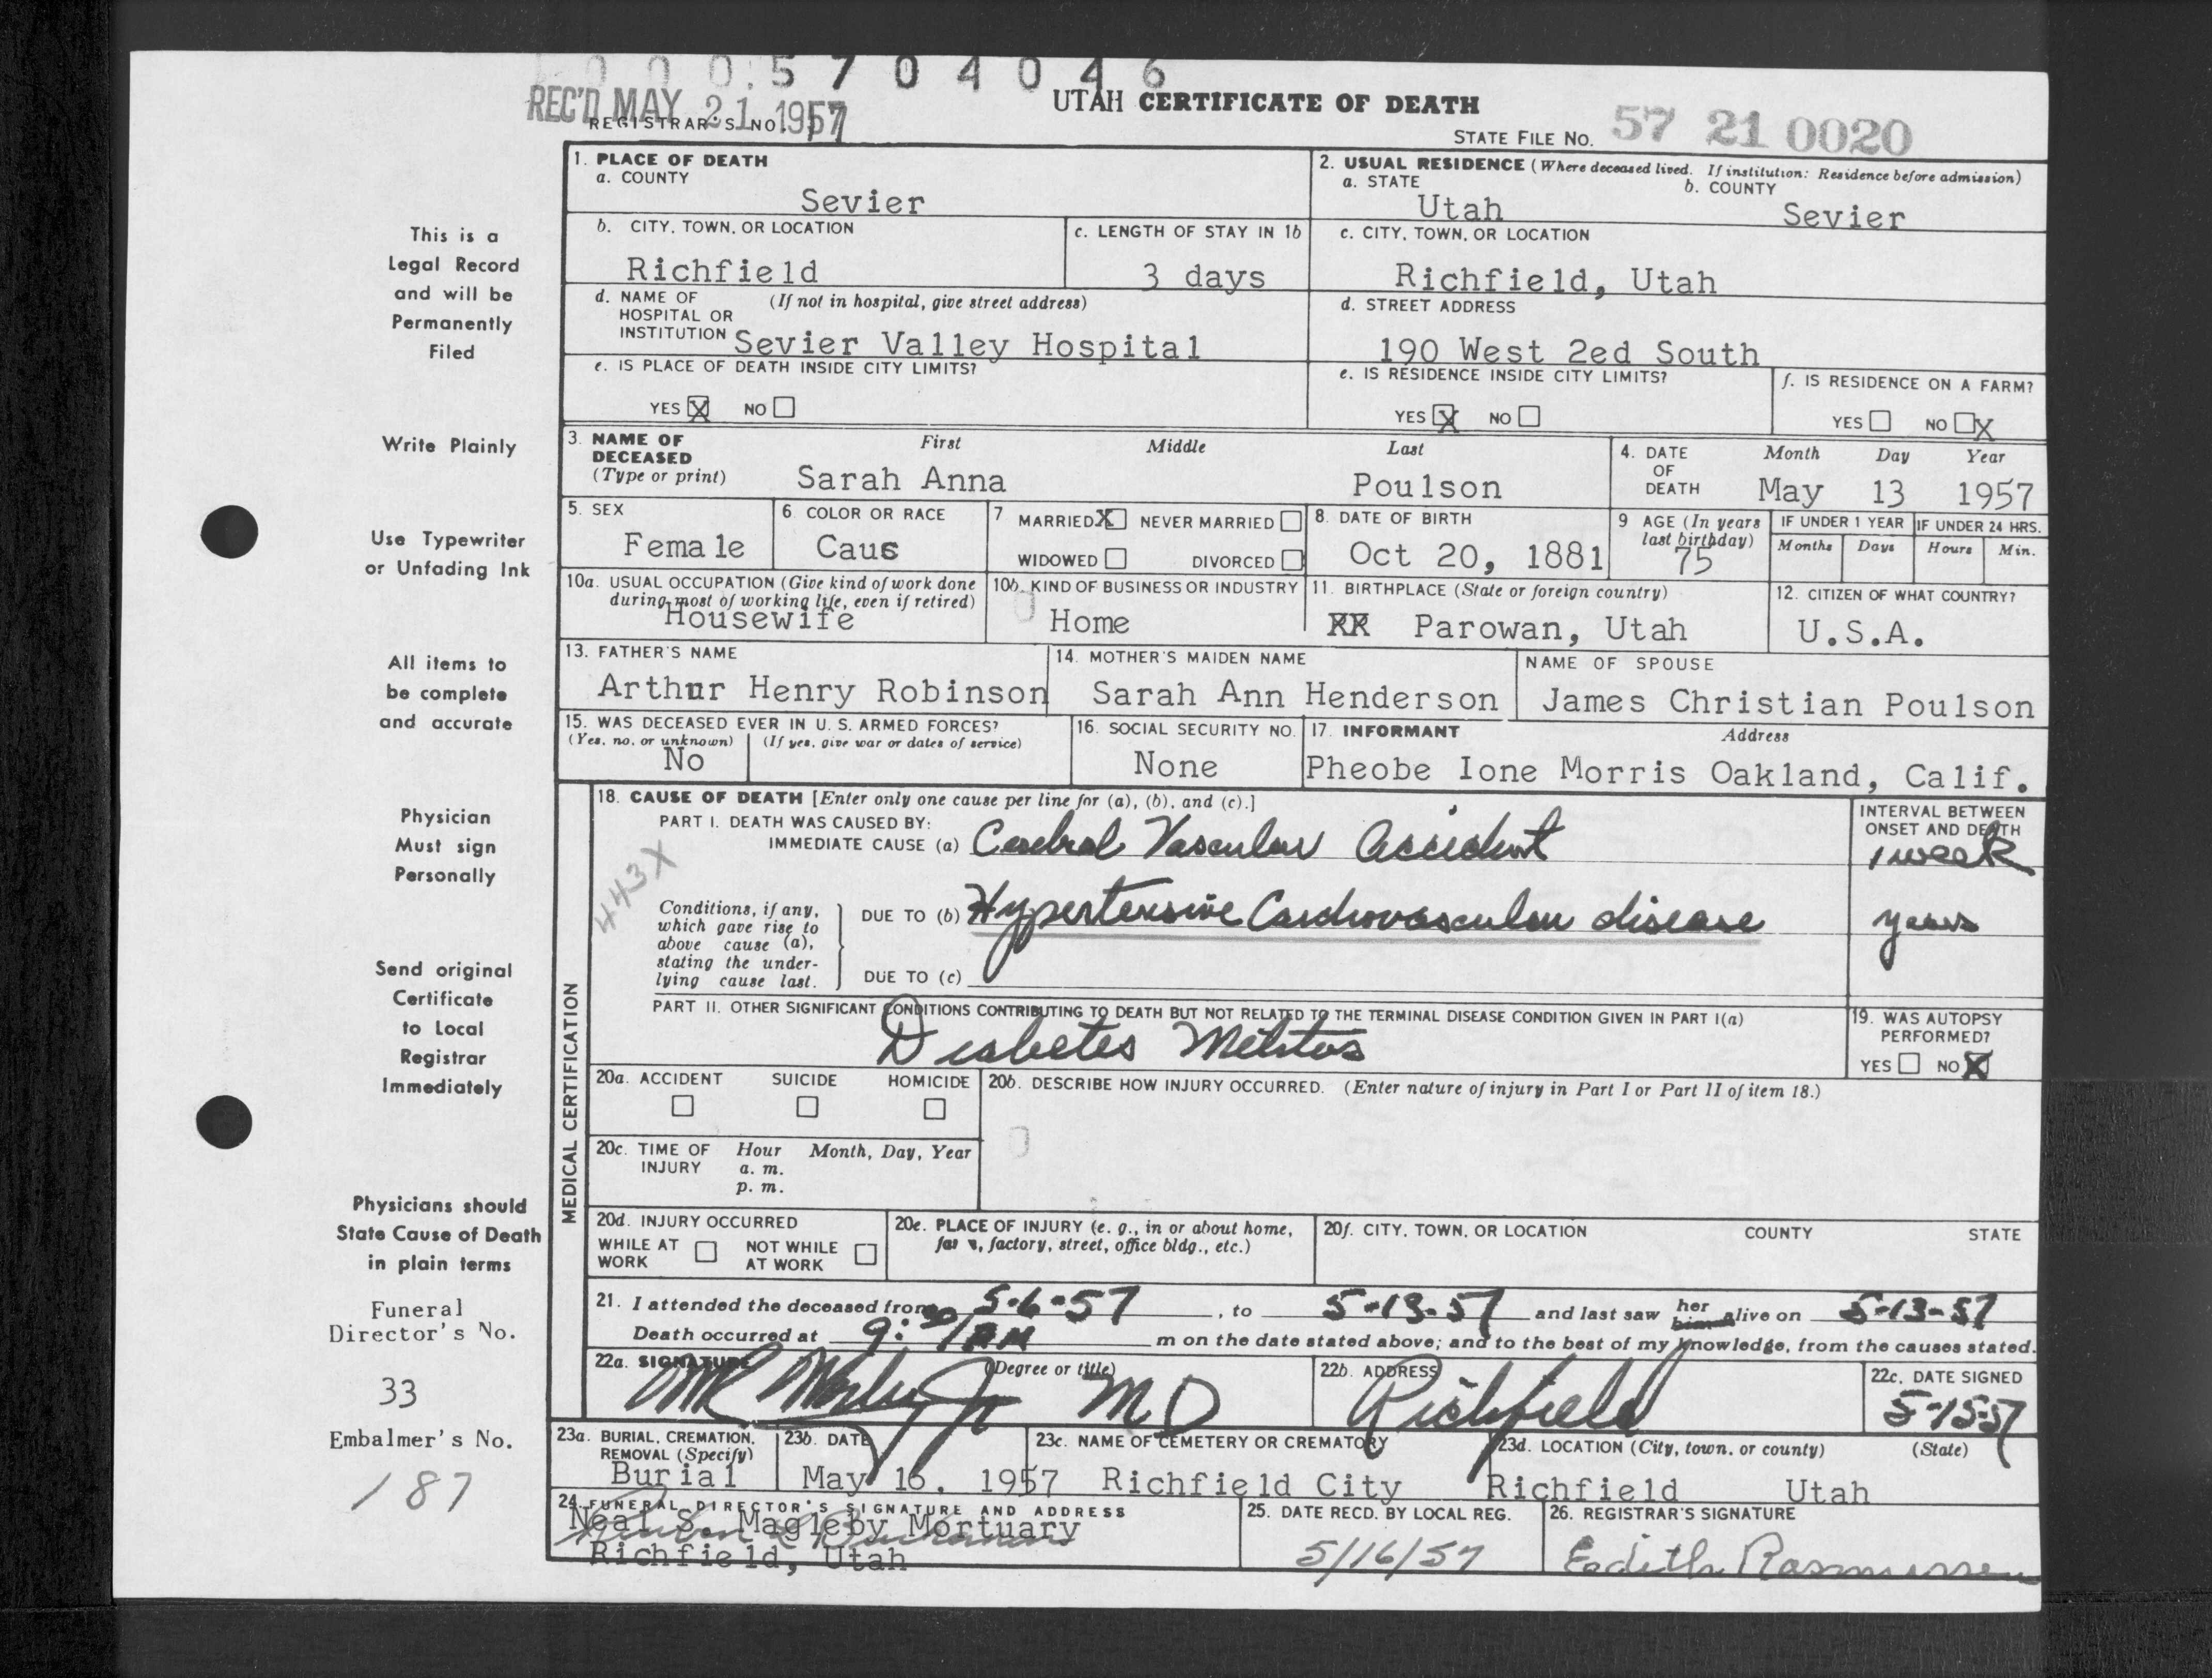 0 0 0.5 7 0 4 0 4 6
REC'D MAY 21 1957
REGISTRAR'S NO.
UTAH CERTIFICATE OF DEATH
STATE FILE NO. 57 21 0020
1. PLACE OF DEATH
a. COUNTY
Sevier
2. USUAL RESIDENCE (Where deceased lived. If institution: Residence before admission)
a. STATE b. COUNTY
Utah Sevier
b. CITY, TOWN, OR LOCATION
Richfield
c. LENGTH OF STAY IN 1b
3 days
c. CITY, TOWN, OR LOCATION
Richfield, Utah
d. NAME OF (If not in hospital, give street address)
HOSPITAL OR
INSTITUTION Sevier Valley Hospital
d. STREET ADDRESS
190 West 2ed South
e. IS PLACE OF DEATH INSIDE CITY LIMITS?
YES X NO
e. IS RESIDENCE INSIDE CITY LIMITS?
YES X NO
f. IS RESIDENCE ON A FARM?
YES NO X
3. NAME OF First Middle Last
DECEASED
(Type or print) Sarah Anna Poulson
4. DATE Month Day Year
OF
DEATH May 13 1957
5. SEX
Female
6. COLOR OR RACE
Caus
7 MARRIED X NEVER MARRIED
WIDOWED DIVORCED
8. DATE OF BIRTH
Oct 20, 1881
9 AGE (In years
last birthday)
75
IF UNDER 1 YEAR IF UNDER 24 HRS.
Months Days Hours Min.
10a. USUAL OCCUPATION (Give kind of work done
during most of working life, even if retired)
Housewife
10b. KIND OF BUSINESS OR INDUSTRY
Home
11. BIRTHPLACE (State or foreign country)
Parowan, Utah
12. CITIZEN OF WHAT COUNTRY?
U.S.A.
13. FATHER'S NAME
Arthur Henry Robinson
14. MOTHER'S MAIDEN NAME
Sarah Ann Henderson
NAME OF SPOUSE
James Christian Poulson
15. WAS DECEASED EVER IN U. S. ARMED FORCES?
(Yes, no, or unknown) (If yes, give war or dates of service)
No
16. SOCIAL SECURITY NO.
None
17. INFORMANT Address
Pheobe Ione Morris Oakland, Calif.
MEDICAL CERTIFICATION
18. CAUSE OF DEATH [Enter only one cause per line for (a), (b), and (c).]
PART I. DEATH WAS CAUSED BY:
IMMEDIATE CAUSE (a) Cerebral Vascular accident
INTERVAL BETWEEN
ONSET AND DEATH
1 week
443X
Conditions, if any,
which gave rise to
above cause (a),
stating the under-
lying cause last.
DUE TO (b) Hypertensive Cardiovascular disease
years
DUE TO (c)
PART II. OTHER SIGNIFICANT CONDITIONS CONTRIBUTING TO DEATH BUT NOT RELATED TO THE TERMINAL DISEASE CONDITION GIVEN IN PART I(a)
Diabetes Melitus
19. WAS AUTOPSY
PERFORMED?
YES NO X
20a. ACCIDENT SUICIDE HOMICIDE
20b. DESCRIBE HOW INJURY OCCURRED. (Enter nature of injury in Part I or Part II of item 18.)
20c. TIME OF Hour Month, Day, Year
INJURY a. m.
p. m.
20d. INJURY OCCURRED
WHILE AT NOT WHILE
WORK AT WORK
20e. PLACE OF INJURY (e. g., in or about home,
farm, factory, street, office bldg., etc.)
20f. CITY, TOWN, OR LOCATION COUNTY STATE
21. I attended the deceased from 5-6-57, to 5-13-57 and last saw her him alive on 5-13-57
Death occurred at 9:30 m on the date stated above; and to the best of my knowledge, from the causes stated.
22a. SIGNATURE (Degree or title)
M D
22b. ADDRESS
Richfield
22c. DATE SIGNED
5-15-57
23a. BURIAL, CREMATION,
REMOVAL (Specify)
Burial
23b. DATE
May 16. 1957
23c. NAME OF CEMETERY OR CREMATORY
Richfield City
23d. LOCATION (City, town, or county) (State)
Richfield Utah
24. FUNERAL DIRECTOR'S SIGNATURE AND ADDRESS
Neal S. Magleby Mortuary
Richfield, Utah
25. DATE RECD. BY LOCAL REG.
5/16/57
26. REGISTRAR'S SIGNATURE
Eedith Rasmussen
This is a
Legal Record
and will be
Permanently
Filed
Write Plainly
Use Typewriter
or Unfading Ink
All items to
be complete
and accurate
Physician
Must sign
Personally
Send original
Certificate
to Local
Registrar
Immediately
Physicians should
State Cause of Death
in plain terms
Funeral
Director's No.
33
Embalmer's No.
187